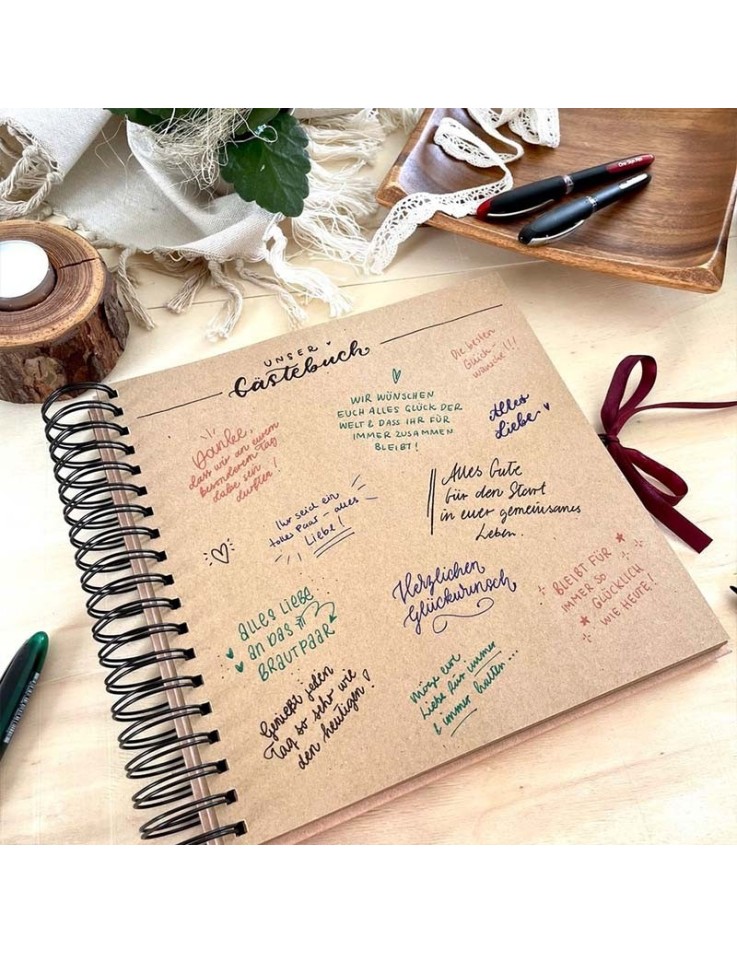 UNSER
Gästebuch
Die besten
Glück-
wünsche!!!
WIR WÜNSCHEN
EUCH ALLES GLÜCK DER
WELT & DASS IHR FÜR
IMMER ZUSAMMEN
BLEIBT!
Alles
Liebe
Danke,
dass wir an eurem
besonderen Tag
dabei sein
durften!
Alles Gute
für den Start
in euer gemeinsames
Leben.
Ihr seid ein
tolles Paar - alles
Liebe!
Herzlichen
Glückwunsch
BLEIBT FÜR
IMMER SO
GLÜCKLICH
WIE HEUTE!
ALLES LIEBE
AN DAS
BRAUTPAAR
Möge eure
Liebe für immer
& immer halten...
Genießt jeden
Tag so sehr wie
den heutigen!